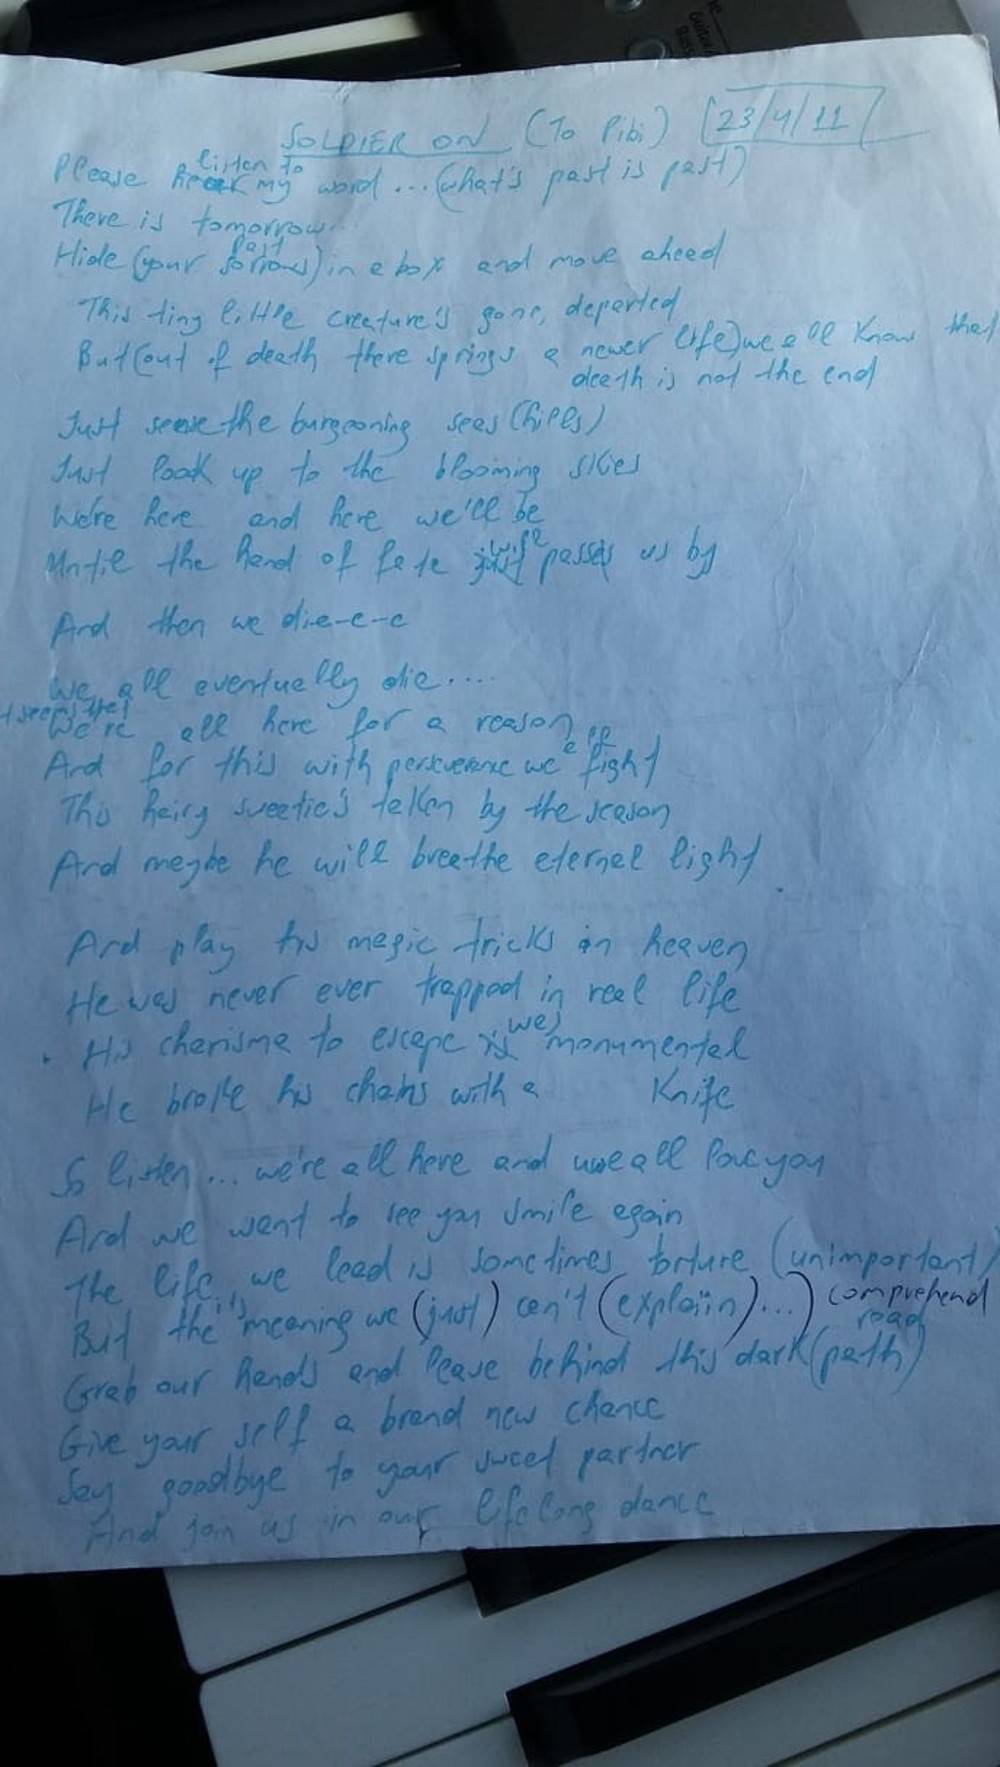 SOLDIER ON (To Pibi) 23/4/11
listen to
Please hear my word ... (what's past is past)
There is tomorrow...
past
Hide (your sorrows) in a box and move ahead
This tiny little creature's gone, departed
But (out of death there springs a newer life) we all know that
death is not the end
Just see the burgeoning seas (hills)
Just look up to the blooming skies
We're here and here we'll be
will
Until the hand of fate just passes us by
And then we die-e-e
We all eventually die....
It seems that
We're all here for a reason
all
And for this with perseverance we fight
This hairy sweetie's taken by the season
And maybe he will breathe eternal light
And play his magic tricks in heaven
He was never ever trapped in real life
was
His charisma to escape is monumental
He broke his chains with a knife
So listen... we're all here and we all love you
And we want to see you smile again
The life we lead is sometimes torture (unimportant)
it's
But the meaning we (just) can't (explain)...) comprehend
read
Grab our hands and leave behind this dark (path)
Give your self a brand new chance
Say goodbye to your sweet partner
And join us in our lifelong dance